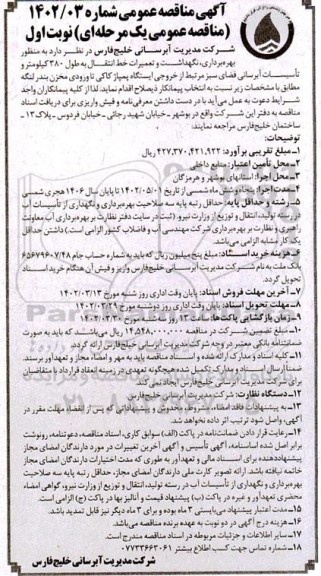 آگهی مناقصه عمومی شماره ۱۴۰۲/۰۳
(مناقصه عمومی یک مرحله‌ای) نوبت اول
شرکت مدیریت آبرسانی خلیج‌فارس در نظر دارد به منظور
بهره‌برداری، نگهداشت و تعمیرات خط انتقال به طول ۳۸۰ کیلومتر و
تأسیسات آبرسانی فضای سبز مرتبط از خروجی ایستگاه پمپاژ کاکی تا ورودی مخزن بندر لنگه
مطابق با مشخصات زیر نسبت به انتخاب پیمانکار ذیصلاح اقدام نماید. لذا از کلیه پیمانکاران واجد
شرایط دعوت به عمل می آید با در دست داشتن معرفی‌نامه و فیش واریزی برای دریافت اسناد
مناقصه به دفتر این شرکت واقع در بوشهر - خیابان شهید رجائی - خیابان فردوس - پلاک ۱۳ -
ساختمان خلیج‌فارس مراجعه نمایند:
توضیحات:
۱- مبلغ تقریبی برآورد: ۴۲۷,۳۷۰,۴۲۱,۹۲۲ ریال
۲- محل تأمین اعتبار: منابع داخلی
۳- محل اجرا: استانهای بوشهر و هرمزگان
۴- مدت اجرا: پنجاه و شش ماه شمسی از تاریخ ۱۴۰۲/۰۵/۰۱ تا پایان سال ۱۴۰۶ هجری شمسی
۵- رشته و حداقل پایه: حداقل رتبه پایه سه صلاحیت بهره‌برداری و نگهداری از تأسیسات آب
در رشته تولید، انتقال و توزیع از وزارت نیرو، (ثبت در سایت دفتر نظارت بر بهره‌برداری آب معاونت
راهبری و نظارت بر بهره‌برداری شرکت مهندسی آب و فاضلاب کشور الزامی است.) داشتن حداقل
یک کار مشابه الزامی می‌باشد.
۶- هزینه خرید اسناد: مبلغ پنج میلیون ریال که باید به شماره حساب جام ۶۵۶۷۹۶۰۷/۴۸
بانک ملت به نام شرکت مدیریت آبرسانی خلیج‌فارس واریز و فیش آن هنگام خرید اسناد
تحویل گردد.
۷- آخرین مهلت فروش اسناد: پایان وقت اداری روز شنبه مورخ ۱۴۰۲/۰۳/۱۳
۸- مهلت تحویل اسناد: پایان وقت اداری روز دوشنبه مورخ ۱۴۰۲/۰۳/۲۹
۹- زمان بازگشایی پاکت‌ها: ساعت ۱۳ روز
۱۰- مبلغ تضمین شرکت در مناقصه ۱۴,۵۴۸,۰۰۰,۰۰۰ ریال می‌باشد که باید به صورت
ضمانتنامه بانکی معتبر در وجه شرکت مدیریت آبرسانی خلیج‌فارس ارائه گردد.
۱۱- کلیه اسناد و مدارک ارائه شده و اسناد مناقصه باید به مهر و امضاء مجاز و تعهدآور برسند.
ضمنا ارسال اسناد و مدارک تکمیل شده هیچگونه تعهدی در زمینه انعقاد قرارداد با متقاضیان
برای شرکت مدیریت آبرسانی خلیج‌فارس ایجاد نمی کند
۱۲- دستگاه نظارت: شرکت مدیریت آبرسانی خلیج‌فارس
۱۳- به پیشنهادات فاقد امضاء، مشروط، مخدوش و پیشنهاداتی که پس از انقضاء مهلت مقرر در
آگهی، واصل شود ترتیب اثر داده نخواهد شد.
۱۴- رعایت قرار دادن ضمانت‌نامه در پاکت (الف) سوابق کاری، اسناد مناقصه، دعوتنامه، رونوشت
برابر اصل شده اساسنامه، آگهی تأسیس و آگهی آخرین تغییرات در مورد دارندگان امضای مجاز
پیشنهاددهنده برای اسناد مالی و تعهدآور به طوری که مدت اختیارات دارندگان امضای مجاز
خاتمه نیافته باشد. ارائه تصویر کارت ملی دارندگان امضای مجاز، حداقل رتبه پایه سه صلاحیت
بهره‌برداری و نگهداری از تأسیسات آب در رشته تولید، انتقال و توزیع از وزارت نیرو، گواهی امضاء
محضری تعهدآور و غیره در پاکت (ب) پیشنهاد قیمت و آنالیز بها در پاکت (ج) الزامی است.
۱۵- مدت اعتبار پیشنهاد می‌بایستی ۳ ماه بوده و برای ۳ ماه دیگر نیز قابل تمدید باشد.
۱۶- هزینه درج آگهی در دو نوبت به عهده برنده مناقصه می‌باشد.
۱۷- سایر اطلاعات و جزئیات مربوطه در اسناد مناقصه مندرج است.
۱۸- شماره تماس جهت کسب اطلاع بیشتر ۰۷۷۳۳۶۶۳۰۶۱
شرکت مدیریت آبرسانی خلیج‌فارس